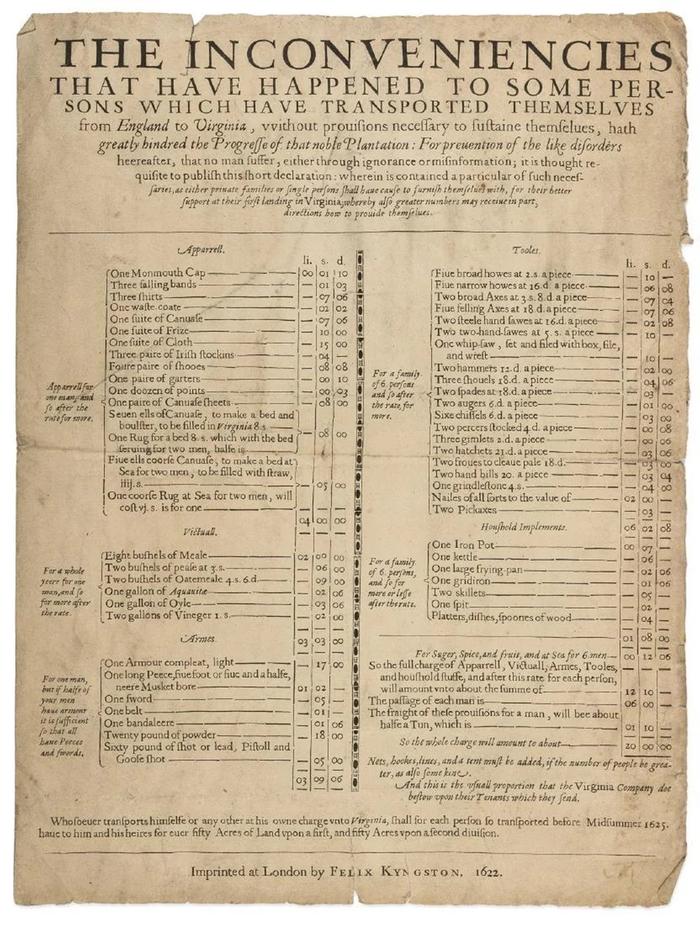 THE INCONVENIENCIES
THAT HAVE HAPPENED TO SOME PER-
SONS WHICH HAVE TRANSPORTED THEMSELVES
from England to Virginia, vvithout prouisions necessary to sustaine themselues, hath
greatly hindred the Progresse of that noble Plantation: For preuention of the like disorders
heereafter, that no man suffer, either through ignorance or misinformation; it is thought re-
quisite to publish this short declaration: wherein is contained a particular of such neces-
saries, as either priuate families or single persons shall haue cause to furnish themselues with, for their better
support at their first landing in Virginia; whereby also greater numbers may receiue in part,
directions how to prouide themselues.
Apparrell.
li. s. d.
Apparrell for
one man, and
so after the
rate for more.
One Monmouth Cap 00 01 10
Three falling bands — 01 03
Three shirts — 07 06
One waste-coate — 02 02
One suite of Canuase — 07 06
One suite of Frize — 10 00
One suite of Cloth — 15 00
Three paire of Irish stockins — 04 —
Foure paire of shooes — 08 08
One paire of garters — 00 10
One doozen of points — 00 03
One paire of Canuase sheets — 08 00
Seuen ells of Canuase, to make a bed and
boulster, to be filled in Virginia 8.s.
One Rug for a bed 8.s. which with the bed
seruing for two men, halfe is — 08 00
Fiue ells coorse Canuase, to make a bed at
Sea for two men, to be filled with straw,
iiij.s.
One coorse Rug at Sea for two men, will
cost vj.s. is for one — 05 00
04 00 00
Victuall.
For a whole
yeere for one
man, and so
for more after
the rate.
Eight bushels of Meale 02 00 00
Two bushels of pease at 3.s. — 06 00
Two bushels of Oatemeale 4.s. 6.d. — 09 00
One gallon of Aquauitæ — 02 06
One gallon of Oyle — 03 06
Two gallons of Vineger 1.s. — 02 00
03 03 00
Armes.
For one man,
but if halfe of
your men
haue armour
it is sufficient
so that all
haue Peeces
and swords.
One Armour compleat, light — 17 00
One long Peece, fiue foot or fiue and a halfe,
neere Musket bore 01 02 —
One sword — 05 —
One belt — 01 —
One bandaleere — 01 06
Twenty pound of powder — 18 00
Sixty pound of shot or lead, Pistoll and
Goose shot — 05 00
03 09 06
Tooles.
li. s. d.
For a family
of 6. persons
and so after
the rate for
more.
Fiue broad howes at 2.s. a piece — 10 —
Fiue narrow howes at 16.d. a piece — 06 08
Two broad Axes at 3.s. 8.d. a piece — 07 04
Fiue felling Axes at 18.d. a piece — 07 06
Two steele hand sawes at 16.d. a piece — 02 08
Two two-hand-sawes at 5.s. a piece — 10 —
One whip-saw, set and filed with box, file,
and wrest — 10 —
Two hammers 12.d. a piece — 02 00
Three shouels 18.d. a piece — 04 06
Two spades at 18.d. a piece — 03 —
Two augers 6.d. a piece — 01 00
Sixe chissels 6.d. a piece — 03 00
Two percers stocked 4.d. a piece — 00 08
Three gimlets 2.d. a piece — 00 06
Two hatchets 21.d. a piece — 03 06
Two froues to cleaue pale 18.d. — 03 00
Two hand bills 20. a piece — 03 04
One grindlestone 4.s. — 04 00
Nailes of all sorts to the value of 02 00 —
Two Pickaxes — 03 —
06 02 08
Houshold Implements.
For a family
of 6. persons,
and so for
more or lesse
after the rate.
One Iron Pot 00 07 —
One kettle — 06 —
One large frying-pan — 02 06
One gridiron — 01 06
Two skillets — 05 —
One spit — 02 —
Platters, dishes, spoones of wood — 04 —
01 08 00
For Suger, Spice, and fruit, and at Sea for 6. men 00 12 06
So the full charge of Apparrell, Victuall, Armes, Tooles,
and houshold stuffe, and after this rate for each person,
will amount vnto about the summe of 12 10 —
The passage of each man is 06 00 —
The fraight of these prouisions for a man, will bee about
halfe a Tun, which is 01 10 —
So the whole charge will amount to about 20 00 00
Nets, hookes, lines, and a tent must be added, if the number of people be grea-
ter, as also some kine.
And this is the vsuall proportion that the Virginia Company doe
bestow vpon their Tenants which they send.
Whosoeuer transports himselfe or any other at his owne charge vnto Virginia, shall for each person so transported before Midsummer 1625.
haue to him and his heires for euer fifty Acres of Land vpon a first, and fifty Acres vpon a second diuision.
Imprinted at London by FELIX KYNGSTON. 1622.